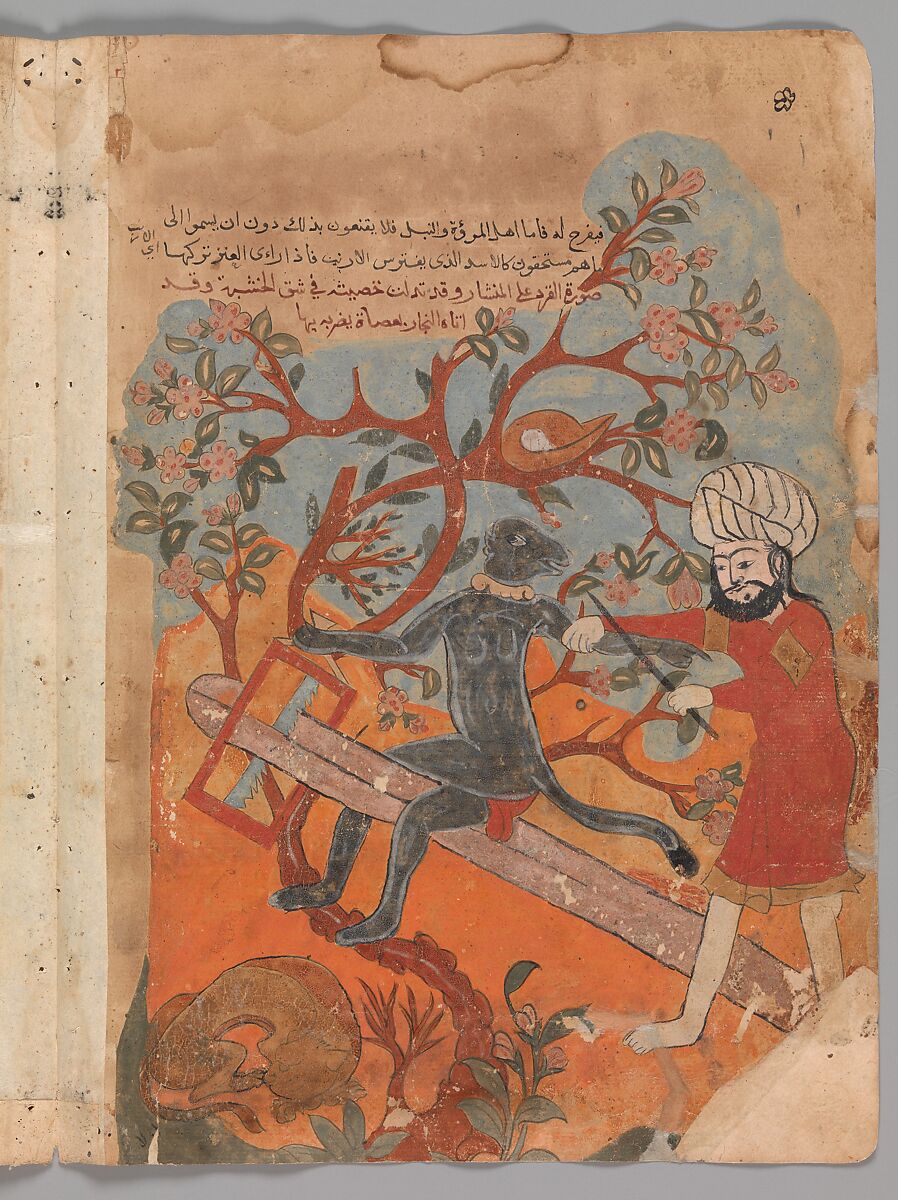 فيفرح له فاما اهل المروة والنبل فلا يقنعون بذلك دون ان يسموا الى
ما هم مستحقون كالاسد الذى يفترس الارنب فاذا راى العنز تركها
صورة القرد على المنشار وقد تدلت خصيته في شق الخشبة وقد
اتاه النجار بعصاة يضربه بها